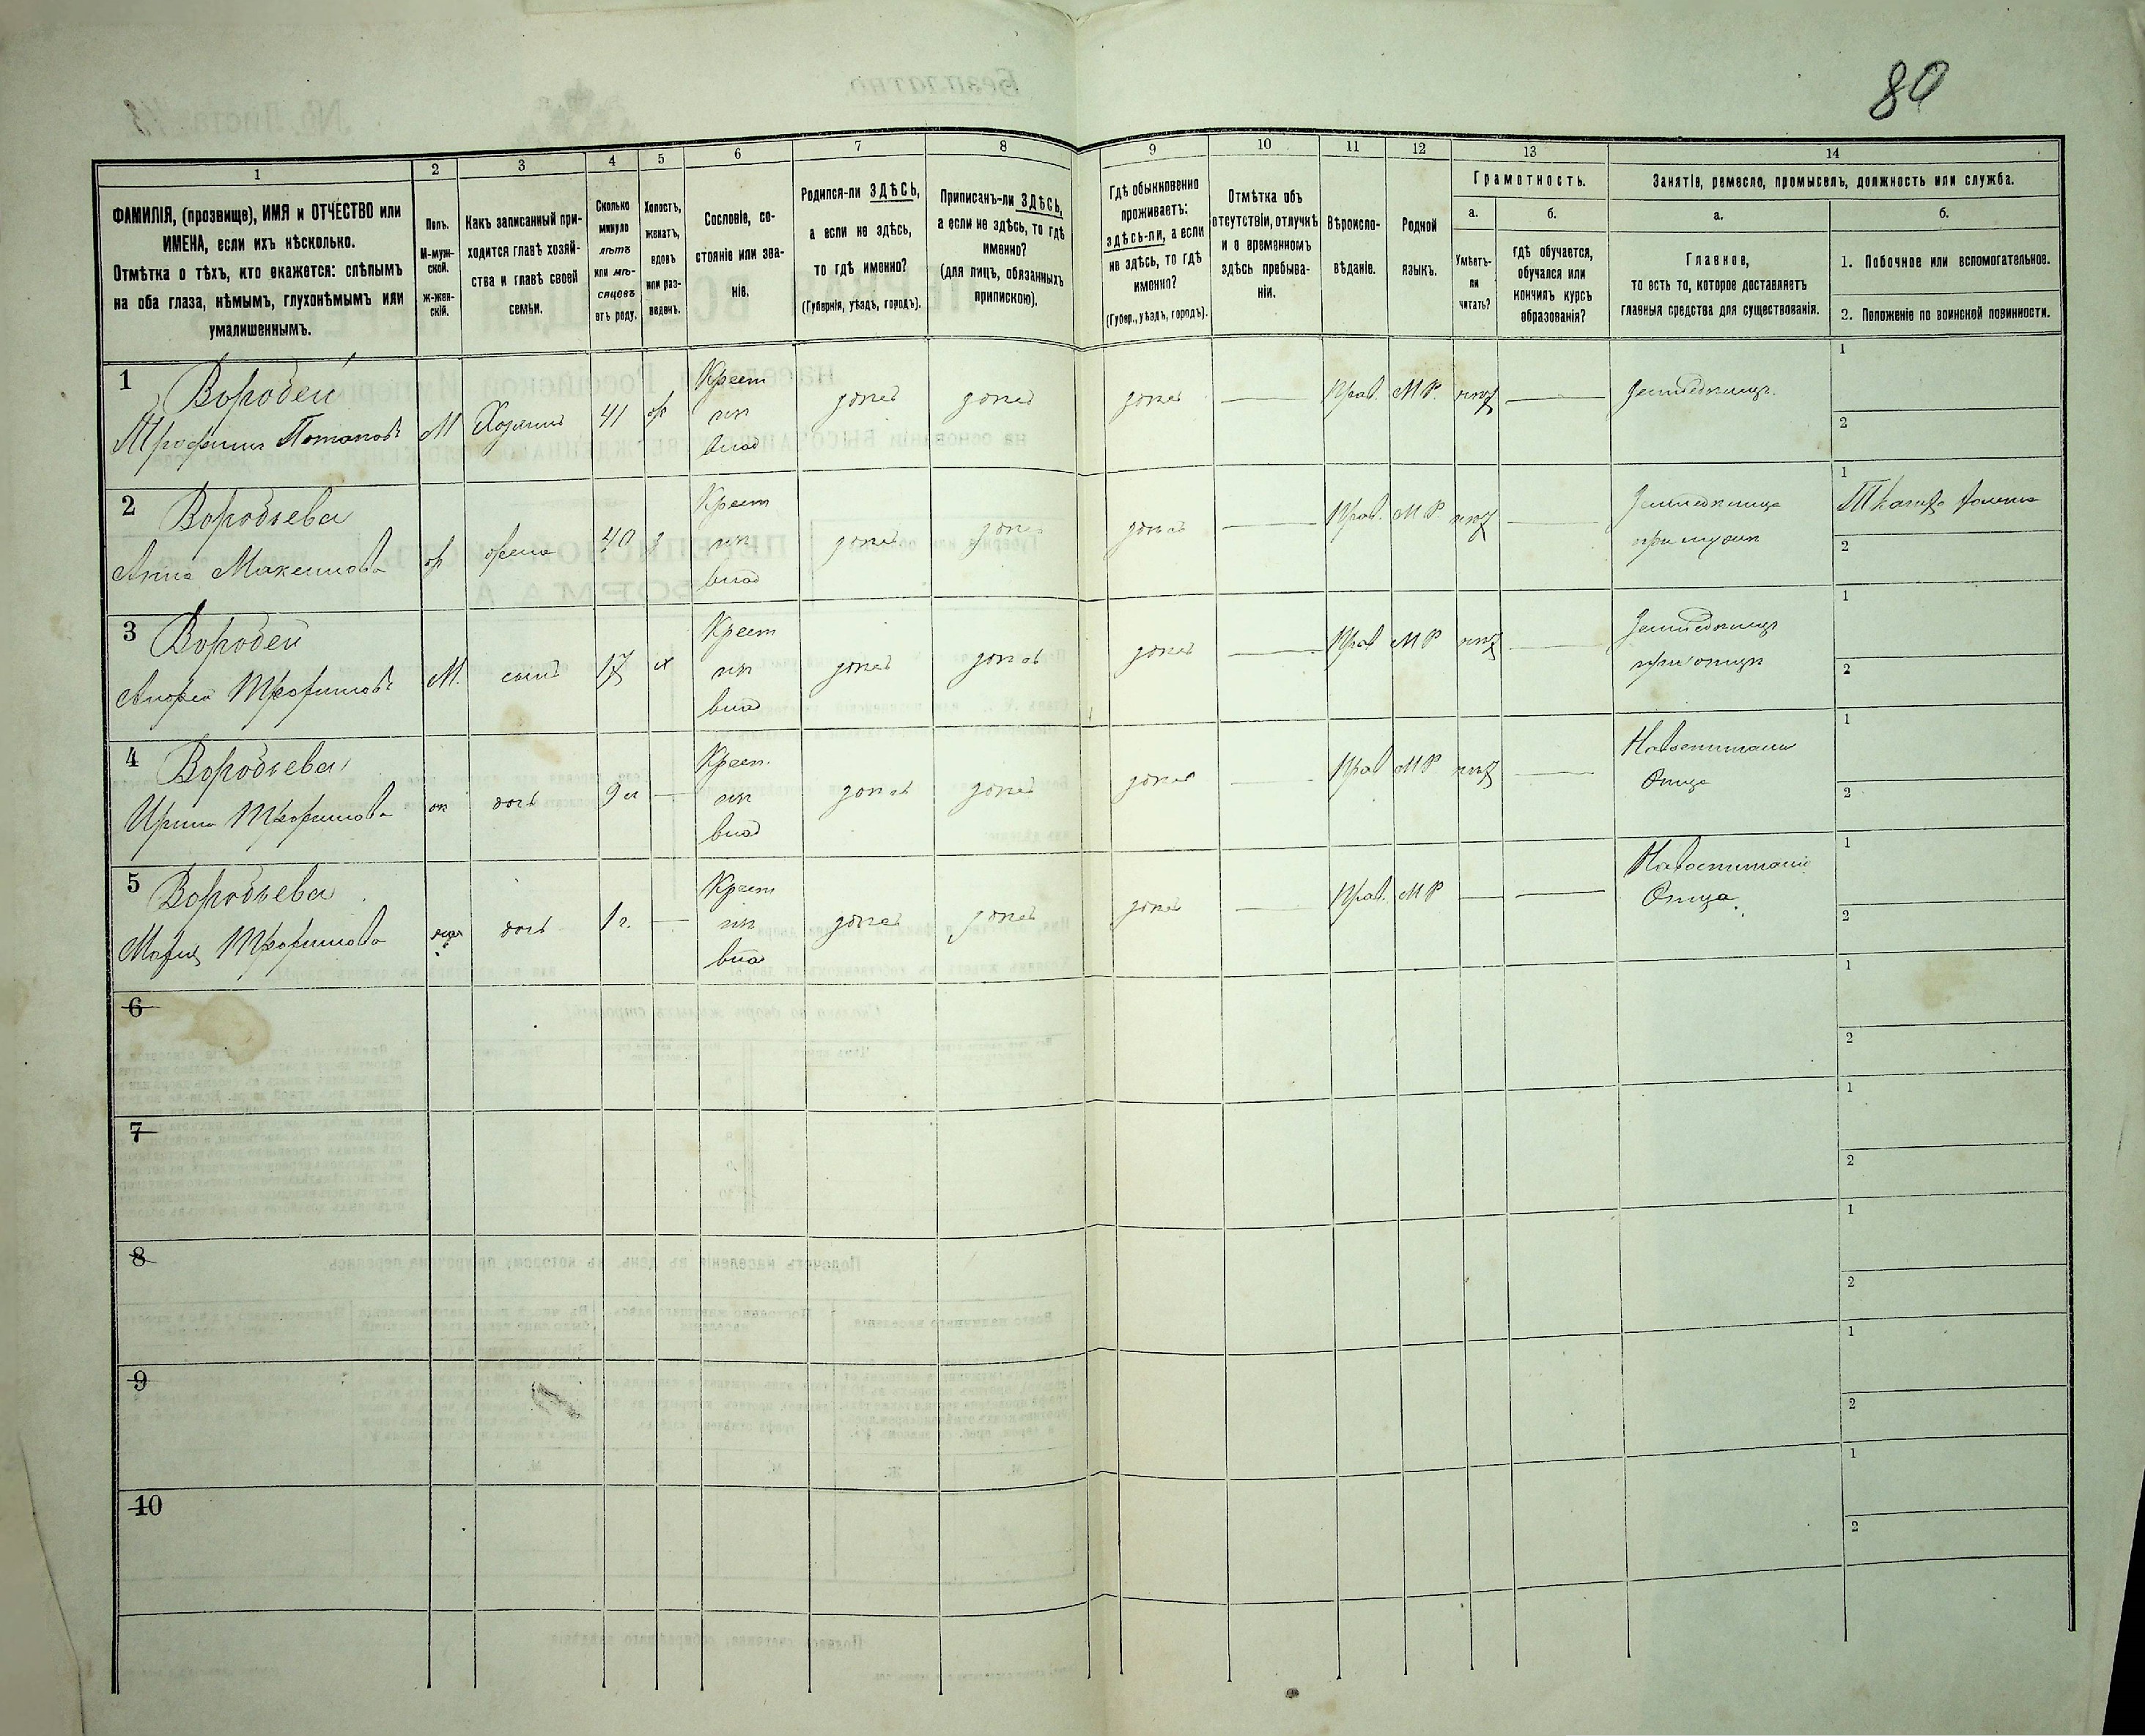 80
1 2 3 4 5 6 7 8 9 10 11 12 13 14
ФАМИЛІЯ, (прозвище), ИМЯ и ОТЧЕСТВО или
ИМЕНА, если ихъ нѣсколько.
Отмѣтка о тѣхъ, кто окажется: слѣпымъ
на оба глаза, нѣмымъ, глухонѣмымъ или
умалишеннымъ.
Полъ.
М-муж-
ской.
ж-жен-
скій.
Какъ записанный при-
ходится главѣ хозяй-
ства и главѣ своей
семьи.
Сколько
минуло
лѣтъ
или мѣ-
сяцевъ
отъ роду.
Холостъ,
женатъ,
вдовъ
или раз-
веденъ.
Сословіе, со-
стояніе или зва-
ніе.
Родился-ли ЗДѢСЬ,
а если не здѣсь,
то гдѣ именно?
(Губернія, уѣздъ, городъ).
Приписанъ-ли ЗДѢСЬ,
а если не здѣсь, то гдѣ
именно?
(для лицъ, обязанныхъ
припискою).
Гдѣ обыкновенно
проживаетъ:
здѣсь-ли, а если
не здѣсь, то гдѣ
именно?
(Губер., уѣздъ, городъ).
Отмѣтка объ
отсутствіи, отлучкѣ
и о временномъ
здѣсь пребыва-
ніи.
Вѣроиспо-
вѣданіе.
Родной
языкъ.
Грамотность.
а.
Умѣетъ-
ли
читать?
б.
гдѣ обучается,
обучался или
кончилъ курсъ
образованія?
Занятіе, ремесло, промыселъ, должность или служба.
а.
Главное,
то есть то, которое доставляетъ
главныя средства для существованія.
б.
1. Побочное или вспомогательное.
2. Положеніе по воинской повинности.
1 Воробей
Трофимъ Потаповъ
М Хозяинъ 41 ж
Крест
ик
влад
здѣсь здѣсь здѣсь — Прав. М Р. нѣтъ —
Земледѣлецъ.
1
2
2 Воробьева
Анна Максимова
ж жена 40 з
Крест
ик
влад
здѣсь здѣсь здѣсь — Прав. М Р. нѣтъ —
Земледѣлица
при мужѣ
1
2
3 Воробей
Андрей Трофимовъ
М. сынъ 17 х
Крест
ик
влад
здѣсь здѣсь здѣсь — Прав М Р нѣтъ —
Земледѣлецъ
при отцѣ
1
2
4 Воробьева
Ирина Трофимова
ж дочь 9 —
Крест.
ик
влад
здѣсь здѣсь здѣсь — Прав М Р нѣтъ —
На воспитаніи
Отца
1
2
5 Воробьева
Марія Трофимова
дочь 1 г. —
Крест
ик
влад
здѣсь здѣсь здѣсь — Прав. М Р — —
На воспитаніи
Отца.
1
2
6
1
2
7
1
2
8
1
2
9
1
2
10
1
2